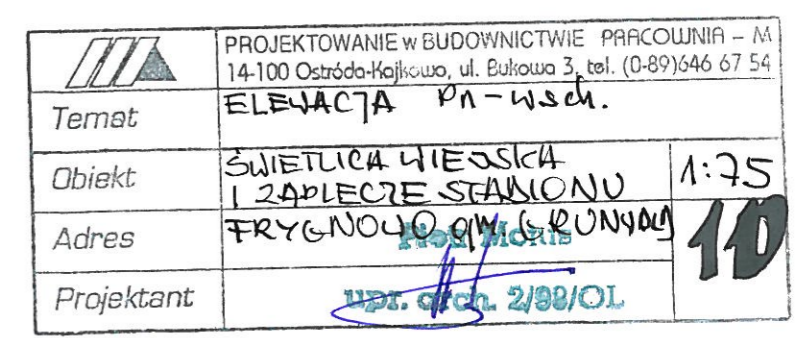 PROJEKTOWANIE w BUDOWNICTWIE PRACOWNIA – M
14-100 Ostróda-Kajkowo, ul. Bukowa 3, tel. (0-89)646 67 54
Temat ELEWACJA Pn-wsch.
Obiekt ŚWIETLICA WIEJSKA
I ZAPLECZE STADIONU 1:75
Adres FRYGNOWO gm GRUNWALD 10
Piotr Monis
Projektant upr. arch. 2/98/OL